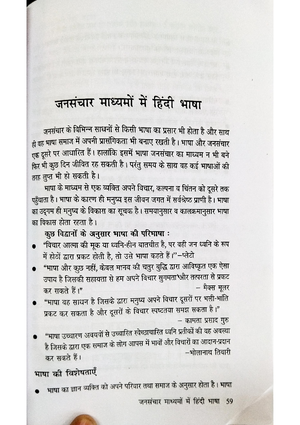 जनसंचार माध्यमों में हिंदी भाषा
जनसंचार के विभिन्न साधनों से किसी भाषा का प्रसार भी होता है और साथ
ही वह भाषा समाज में अपनी प्रासंगिकता भी बनाए रखती है। भाषा और जनसंचार
एक दूसरे पर आधारित हैं। हालांकि इसमें भाषा जनसंचार का माध्यम न भी बने
फिर भी कुछ दिन जीवित रह सकती है। परंतु समय के साथ वह कई भाषाओं की
तरह लुप्त भी हो सकती है।
भाषा के माध्यम से एक व्यक्ति अपने विचार, कल्पना व चिंतन को दूसरे तक
पहुंचाता है। भाषा के कारण ही मनुष्य इस जीवन जगत में सर्वश्रेष्ठ प्राणी है। भाषा
का उद्गम ही मनुष्य के विकास का सूचक है। समयानुसार व कालक्रमानुसार भाषा
का विकास होता रहता है।
कुछ विद्वानों के अनुसार भाषा की परिभाषा :
• "विचार आत्मा की मूक या ध्वनि-हीन बातचीत है, पर वही जब ध्वनि के रूप
में होठों द्वारा प्रकट होती है, तो उसे भाषा कहते हैं।"–प्लेटो
• "भाषा और कुछ नहीं, केवल मानव की चतुर बुद्धि द्वारा आविष्कृत एक ऐसा
उपाय है जिसकी सहायता से हम अपने विचार सुगमता और तत्परता से प्रकट
कर सकते हैं।"
– मैक्स मूलर
• "भाषा वह साधन है जिसके द्वारा मनुष्य अपने विचार दूसरों पर भली-भांति
प्रकट कर सकता है और दूसरों के विचार स्पष्टतया समझ सकता है।"
– कामता प्रसाद गुरु
• "भाषा उच्चारण अवयवों से उच्चारित स्वेच्छाचारित ध्वनि प्रतीकों की वह अवस्था
है जिसके द्वारा एक समाज के लोग आपस में भावों और विचारों का आदान-प्रदान
कर सकते हैं।
–भोलानाथ तिवारी
भाषा की विशेषताएँ
• भाषा का ज्ञान व्यक्ति को अपने परिवार तथा समाज के अनुसार होता है। भाषा
जनसंचार माध्यमों में हिंदी भाषा 59